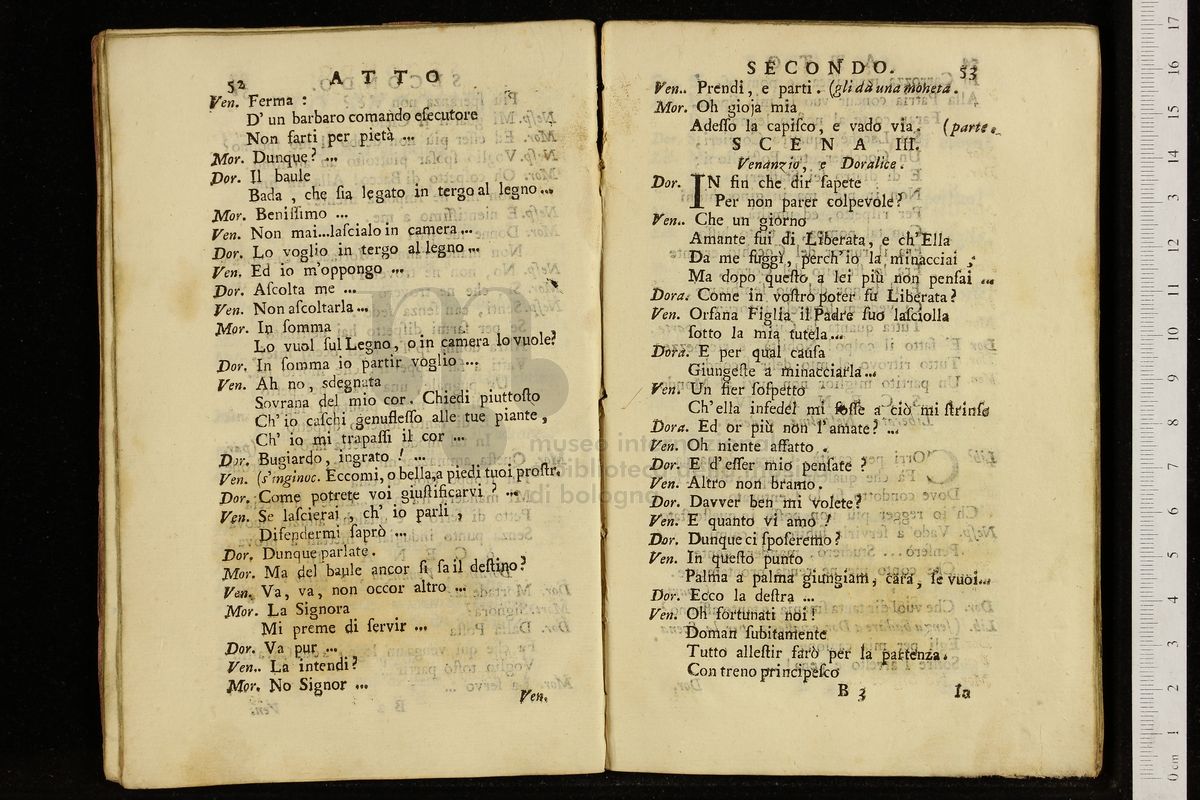 52 ATTO
Ven. Ferma :
D' un barbaro comando eſecutore
Non farti per pietà ...
Mor. Dunque? ...
Dor. Il baule
Bada , che ſia legato in tergo al legno ...
Mor. Beniſſimo ...
Ven. Non mai...laſcialo in camera ...
Dor. Lo voglio in tergo al legno ...
Ven. Ed io m'oppongo ...
Dor. Aſcolta me ...
Ven. Non aſcoltarla ...
Mor. In ſomma
Lo vuol ſul Legno, o in camera lo vuole?
Dor. In ſomma io partir voglio ...
Ven. Ah no, sdegnata
Sovrana del mio cor. Chiedi piuttoſto
Ch' io caſchi genufleſſo alle tue piante,
Ch' io mi trapaſſi il cor ...
Dor. Bugiardo, ingrato ! ...
Ven. (s'inginoc. Eccomi, o bella,a piedi tuoi proſtr.
Dor. Come potrete voi giuſtificarvi ? ...
Ven. Se laſcierai , ch' io parli ,
Difendermi ſaprò ...
Dor. Dunque parlate.
Mor. Ma del baule ancor ſi ſa il deſtino?
Ven. Va, va, non occor altro ...
Mor. La Signora
Mi preme di ſervir ...
Dor. Va pur ...
Ven.. La intendi?
Mor. No Signor ...
Ven.
SECONDO. 53
Ven.. Prendi, e parti. (gli dà una moneta.
Mor. Oh gioja mia
Adeſſo la capiſco, e vado via. (parte.
SCENA III.
Venanzio, e Doralice.
Dor. IN fin che dir ſapete
Per non parer colpevole?
Ven.. Che un giorno
Amante fui di Liberata, e ch'Ella
Da me fuggì, perch'io la minacciai ;
Ma dopo queſto a lei più non penſai ...
Dora. Come in voſtro poter fu Liberata?
Ven. Orfana Figlia il Padre ſuo laſciolla
ſotto la mia tutela...
Dora. E per qual cauſa
Giungeſte a minacciarla...
Ven. Un fier ſoſpetto
Ch'ella infedel mi foſſe a ciò mi ſtrinſe
Dora. Ed or più non l'amate? ...
Ven. Oh niente affatto .
Dor. E d'eſſer mio penſate ?
Ven. Altro non bramo.
Dor. Davver ben mi volete?
Ven. E quanto vi amo !
Dor. Dunque ci ſpoſeremo?
Ven. In queſto punto
Palma a palma giungiam, cara, ſe vuoi...
Dor. Ecco la deſtra ...
Ven. Oh fortunati noi!
Doman ſubitamente
Tutto alleſtir farò per la partenza.
Con treno principeſco
B 3 la
museo internazionale
e biblioteca della musica
di bologna